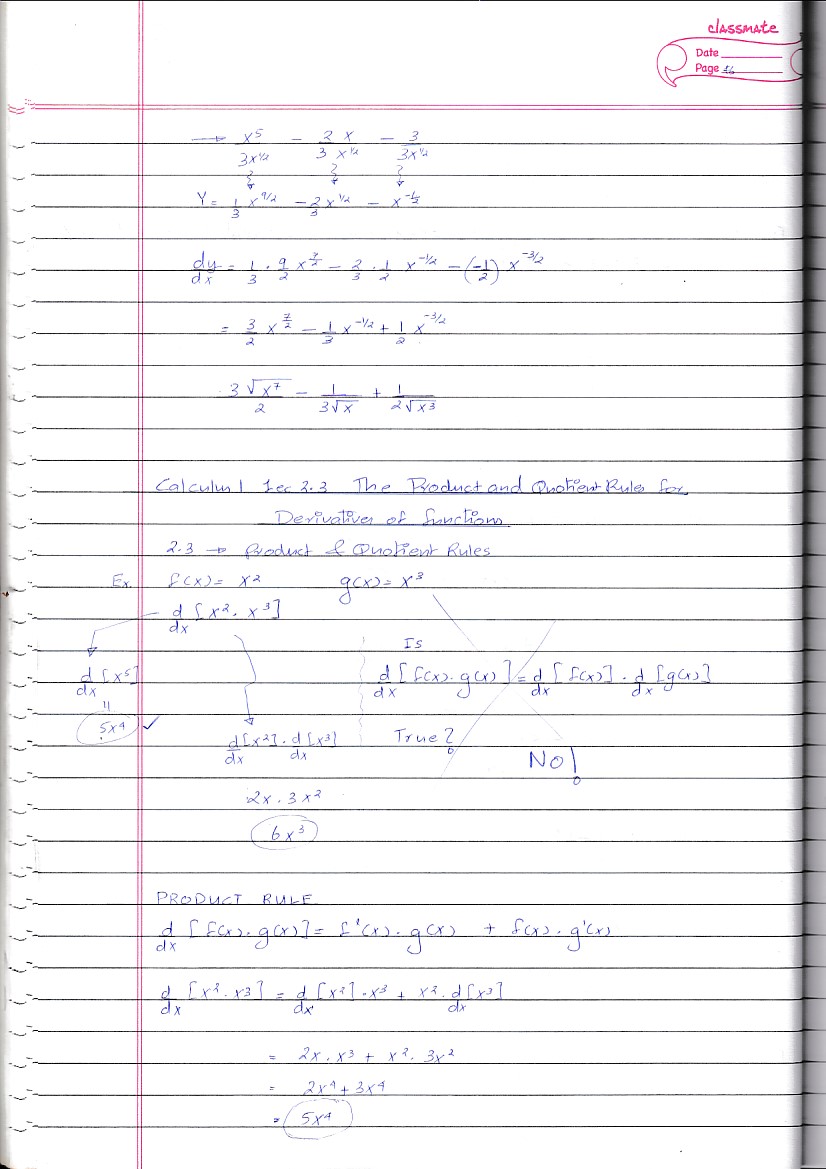 classmate
Date
Page 16
→ x^5/3x^1/2 − 2/3 x/x^1/2 − 3/3x^1/2
Y = 1/3 x^9/2 − 2/3 x^1/2 − x^-1/2
dy/dx = 1/3 · 9/2 x^7/2 − 2/3 · 1/2 x^-1/2 − (-1/2) x^-3/2
= 3/2 x^7/2 − 1/3 x^-1/2 + 1/2 x^-3/2
3√x^7/2 − 1/3√x + 1/2√x^3
Calculus 1 Lec 2.3 The Product and Quotient Rules for
Derivatives of functions
2.3 → Product & Quotient Rules
Ex. f(x) = x^2 g(x) = x^3
d/dx [x^2 · x^3]
Is
d/dx [x^5] d/dx [f(x) · g(x)] = d/dx [f(x)] · d/dx [g(x)]
=
5x^4 ✓
d/dx [x^2] · d/dx [x^3] True?
No!
2x · 3x^2
6x^3
PRODUCT RULE
d/dx [f(x) · g(x)] = f'(x) · g(x) + f(x) · g'(x)
d/dx [x^2 · x^3] = d/dx [x^2] · x^3 + x^2 · d/dx [x^3]
= 2x · x^3 + x^2 · 3x^2
= 2x^4 + 3x^4
= 5x^4